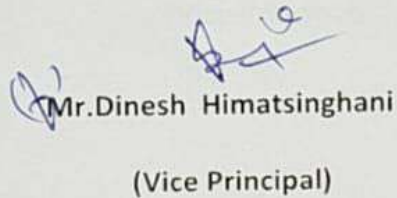 Mr.Dinesh Himatsinghani
(Vice Principal)